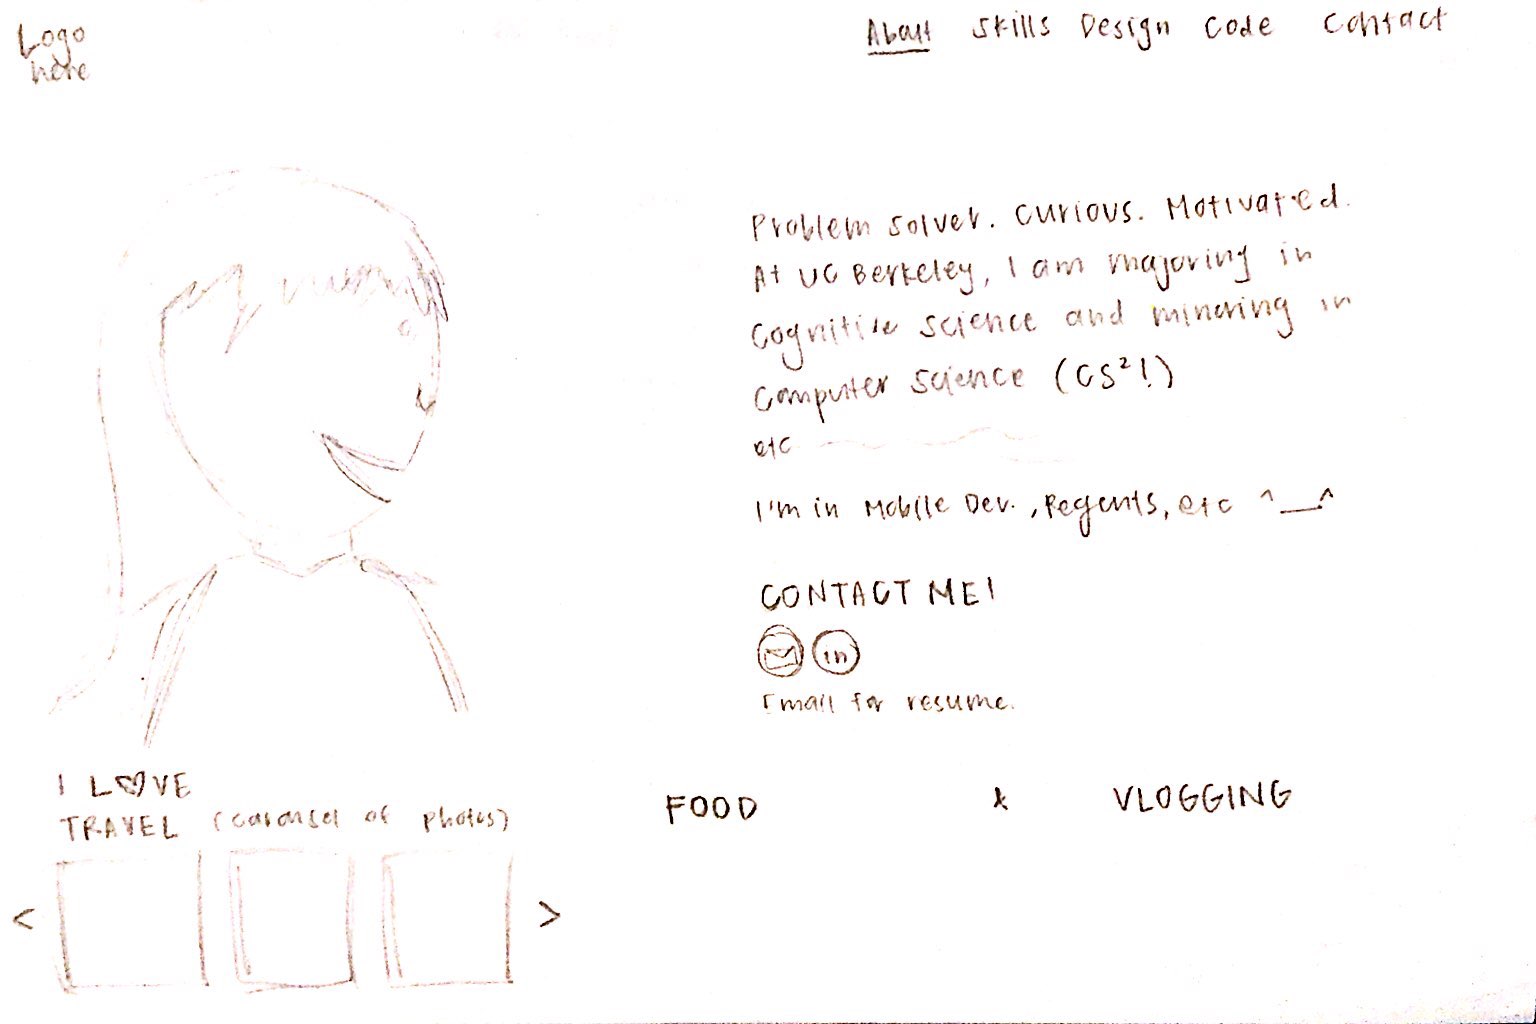 Logo
here
About Skills Design Code Contact
Problem solver. Curious. Motivated.
At UC Berkeley, I am majoring in
Cognitive science and minoring in
Computer Science (CS²!)
etc
I'm in Mobile Dev., Regents, etc ^__^
CONTACT ME!
in
Email for resume.
I L♡VE
TRAVEL (carousel of photos)
FOOD & VLOGGING
< >